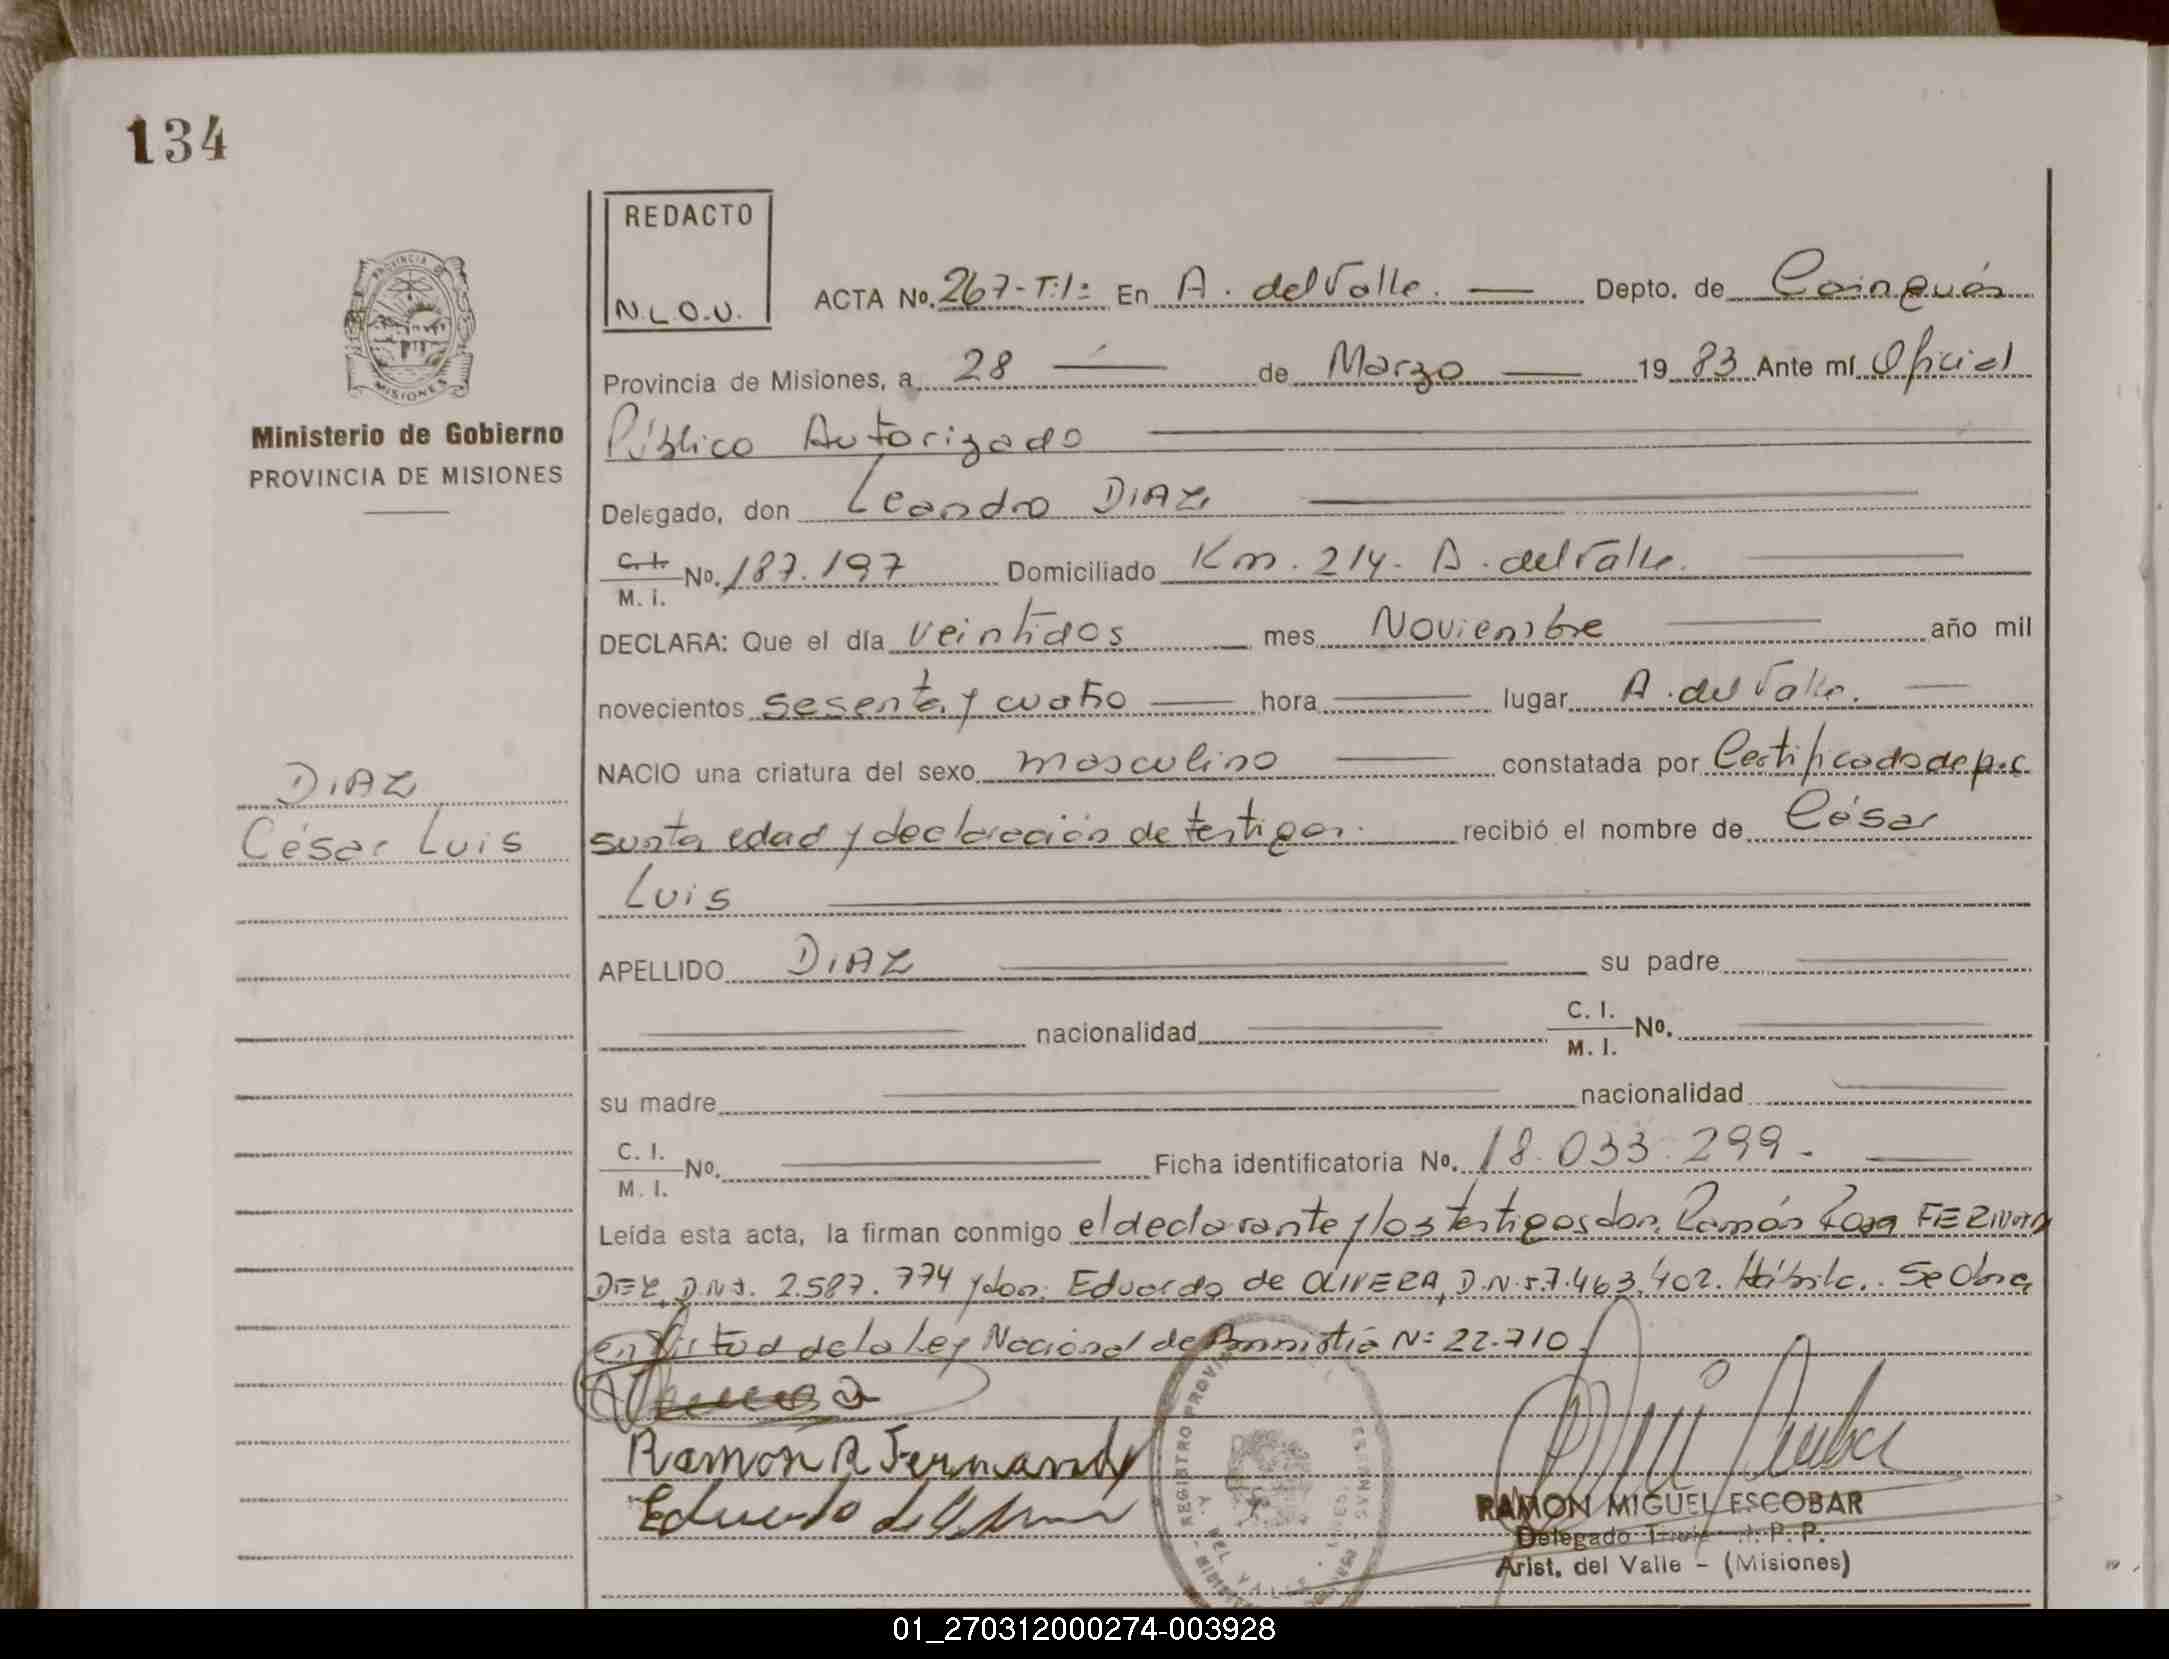 134
REDACTO
N.L.O.U.
PROVINCIA DE
MISIONES
Ministerio de Gobierno
PROVINCIA DE MISIONES
ACTA No. 267-T:1: En A. del Valle. — Depto. de Cainguás
Provincia de Misiones, a 28 — de Marzo — 1983 Ante mí Oficial
Público Autorizado
Delegado, don Leandro DIAZ
C. I. / M. I. No. 187.197 Domiciliado Km. 214. A. del Valle.
DECLARA: Que el día veintidos mes Noviembre año mil
novecientos sesenta y cuatro — hora — lugar A. del Valle. —
NACIO una criatura del sexo masculino — constatada por Certificado de p.c
DIAZ
César Luis
sunta edad y declaración de testigos. recibió el nombre de César
Luis
APELLIDO DIAZ — su padre —
— nacionalidad — C. I. / M. I. No. —
su madre — nacionalidad —
C. I. / M. I. No. — Ficha identificatoria No. 18.033.299. —
Leída esta acta, la firman conmigo el declarante y los testigos don. Ramón Rosa FERNAN
DEZ, D.N.I. 2.587.774 y don. Eduardo de OLIVERA, D.N.I. 7.463.402. Hábile.. Se Obra
en Virtud de la Ley Nacional de Amnistía N: 22.710
Ramon R Fernandez
Eduardo de
REGISTRO PROVIN
DEL VALLE
RAMON MIGUEL ESCOBAR
Delegado P. P.
Arist. del Valle - (Misiones)
01_270312000274-003928